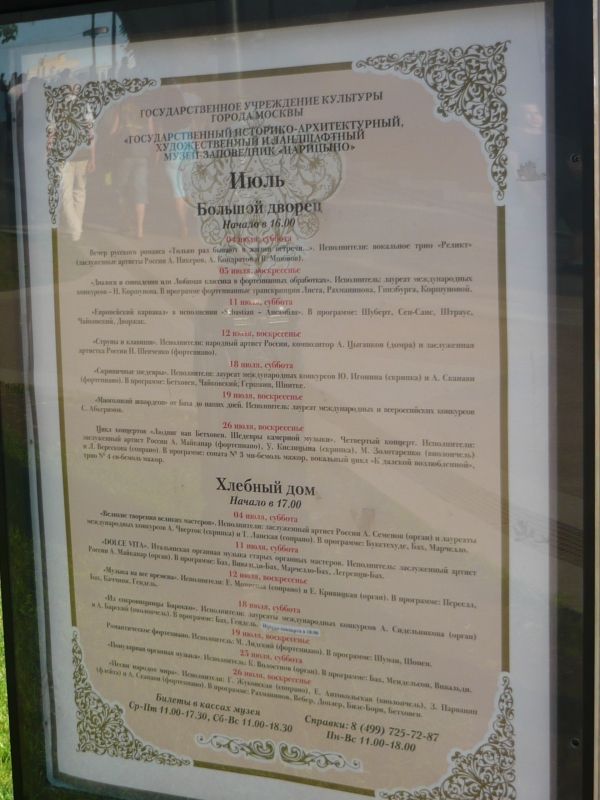 ГОСУДАРСТВЕННОЕ УЧРЕЖДЕНИЕ КУЛЬТУРЫ
ГОРОДА МОСКВЫ
«ГОСУДАРСТВЕННЫЙ ИСТОРИКО-АРХИТЕКТУРНЫЙ,
ХУДОЖЕСТВЕННЫЙ И ЛАНДШАФТНЫЙ
МУЗЕЙ-ЗАПОВЕДНИК «ЦАРИЦЫНО»
Июль
Большой дворец
Начало в 16.00
04 июля, суббота
Вечер русского романса «Только раз бывают в жизни встречи...». Исполнители: вокальное трио «Реликт»
(заслуженные артисты России А. А. Кондратов и В.
05 июля, воскресенье
«Диалоги и совпадения или Любимая классика в фортепианных обработках». Исполнитель: лауреат международных
конкурсов - Н. Коршунова. В программе фортепианные транскрипции Листа, Рахманинова, Гинзбурга, Коршуновой.
11 июля, суббота
«Европейский карнавал» в исполнении - Ансамбля». В программе: Шуберт, Сен-Санс, Штраус,
Чайковский, Дворжак.
12 июля, воскресенье
«Струны и клавиши». Исполнители: народный артист России, композитор А. Цыганков (домра) и заслуженная
артистка России И. Шевченко (фортепиано).
18 июля, суббота
«Скрипичные шедевры». Исполнители: лауреат международных конкурсов Ю. Игонина (скрипка) и А. Сканави
(фортепиано). В программе: Бетховен, Чайковский, Гершвин, Шнитке.
19 июля, воскресенье
«Многоликий аккордеон» от Баха до наших дней. Исполнитель: лауреат международных и всероссийских конкурсов
С.
26 июля, воскресенье
Цикл концертов «Людвиг ван Бетховен. Шедевры камерной музыки». Четвертый концерт. Исполнители:
заслуженный артист России А. Майкапар (фортепиано), У. Кислицына (скрипка), М. Золотаренко (виолончель)
и Л. Верескова (сопрано). В программе: соната № 3 ми-бемоль мажор, вокальный цикл «К далекой возлюбленной»,
трио № 4 си-бемоль мажор.
Хлебный дом
Начало в 17.00
04 июля, суббота
«Великие творения великих мастеров». Исполнители: заслуженный артист России А. Семенов (орган) и лауреаты
международных конкурсов А. Чверток (скрипка) и Т. Ланская (сопрано). В программе: Букстехуде, Бах, Марчелло.
11 июля, суббота
«DOLCE VITA». Итальянская органная музыка старых органных мастеров. Исполнитель: заслуженный артист
России А. Майкапар (орган). В программе: Бах, Вивальди-Бах, Марчелло-Бах, Легренци-Бах.
12 июля, воскресенье
«Музыка на все времена». Исполнители: Е. (сопрано) и Е. Кривицкая (орган). В программе: Перселл,
Бах, Каччини, Гендель.
18 июля, суббота
«Из сокровищницы Барокко». Исполнители: лауреаты международных конкурсов А. Сидельникова (орган)
и А. Барский (виолончель). В программе: Бах, Гендель.
19 июля, воскресенье
Романтическое фортепиано. Исполнитель: М. Лидский (фортепиано). В программе: Шуман, Шопен.
25 июля, суббота
«Популярная органная музыка». Исполнитель: К. Волостнов (орган). В программе: Бах, Мендельсон, Вивальди.
26 июля, воскресенье
«Песни народов мира». Исполнители: Г. Жуковская (сопрано), Е. Антокольская (виолончель), З.
(флейта) и А. Сканави (фортепиано). В программе: Рахманинов, Вебер, Доплер, Вила-Бори, Бетховен.
Билеты в кассах музея
Ср-Пт 11.00-17.30, Сб-Вс 11.00-18.30
Справки: 8 (499) 725-72-87
Пн-Вс 11.00-18.00